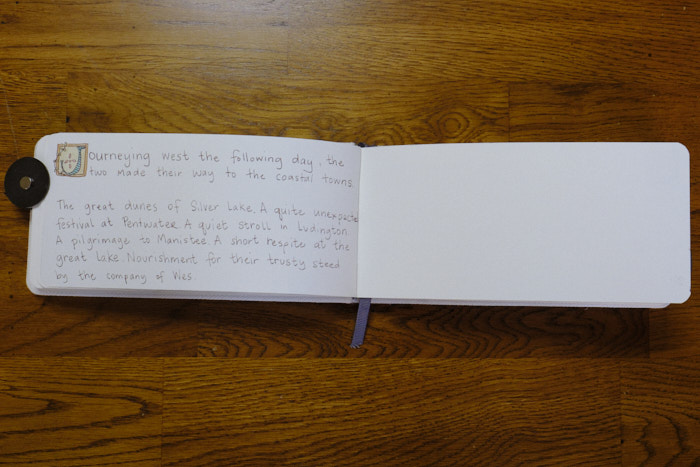 Journeying west the following day, the
two made their way to the coastal towns.
The great dunes of Silver Lake. A quite unexpecte
festival at Pentwater. A quiet stroll in Ludington.
A pilgrimage to Manistee. A short respite at the
great lake. Nourishment for their trusty steed
by the company of Wes.